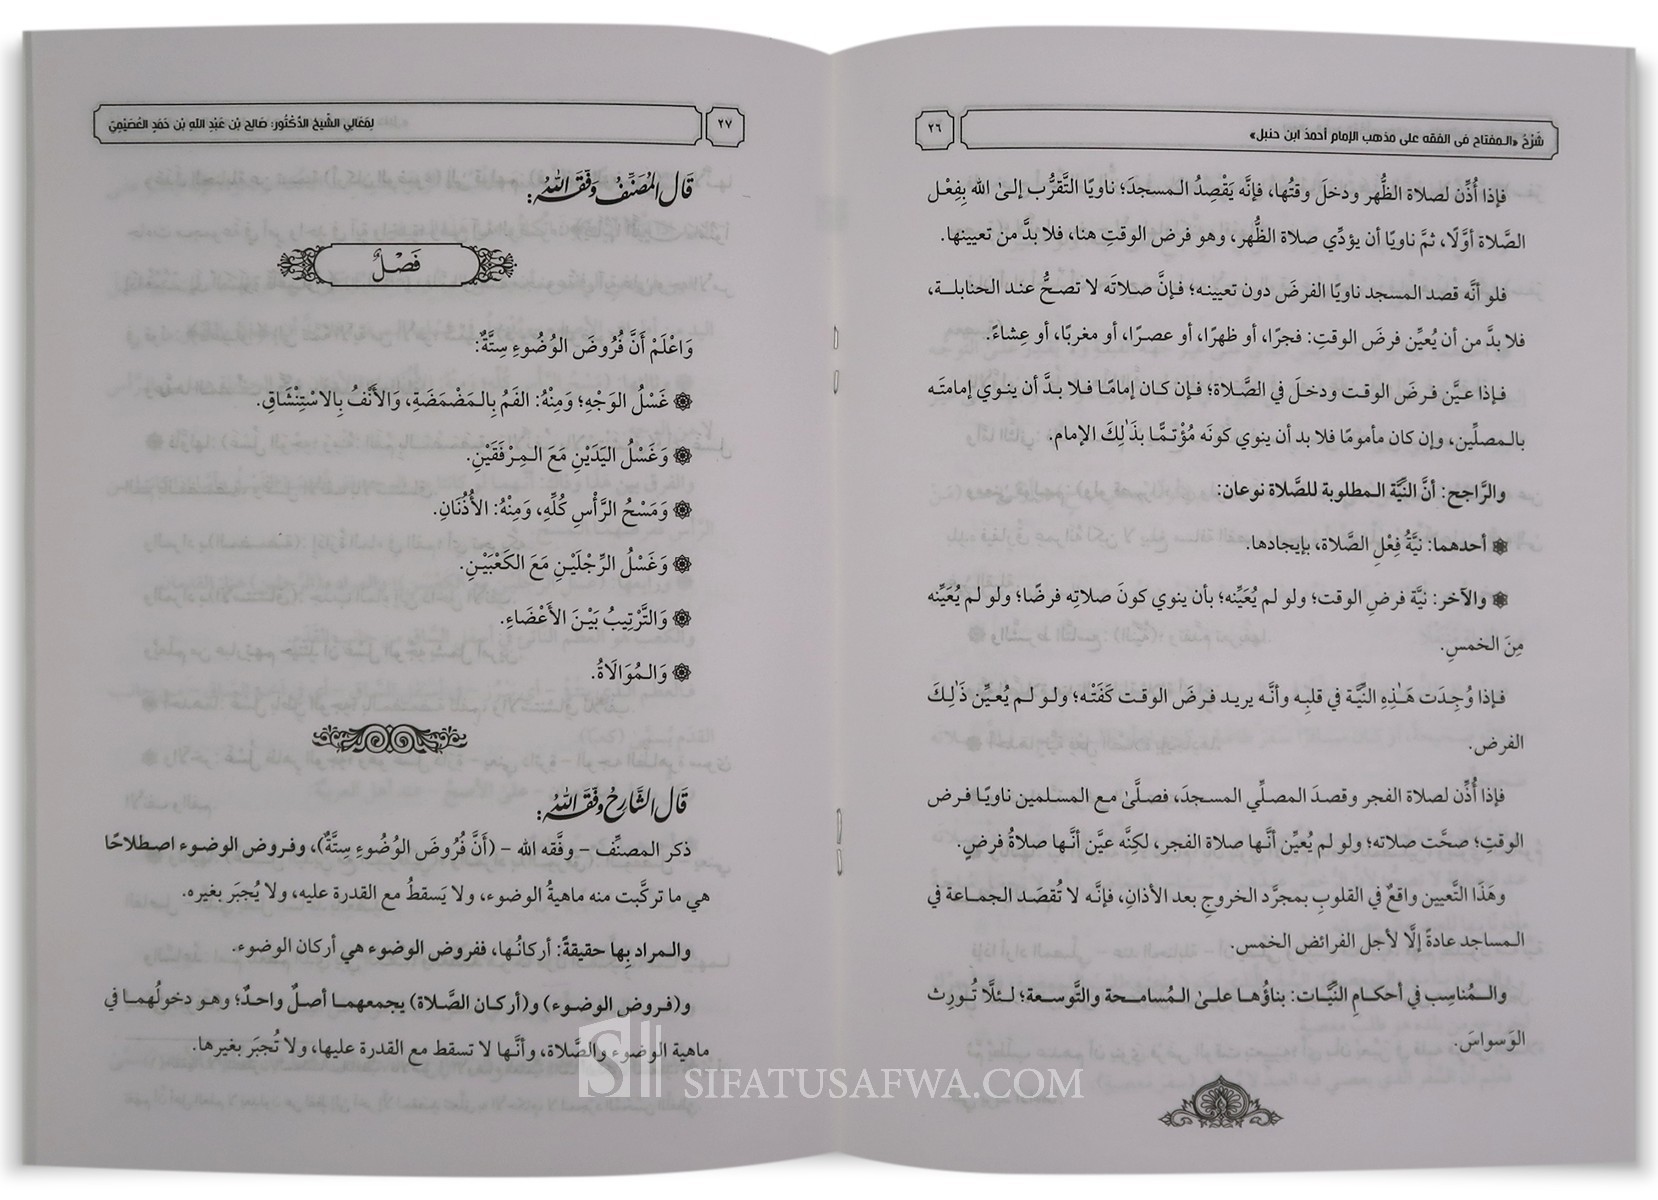 شَرْحُ «المفتاح في الفقه على مذهب الإمام أحمدَ ابن حنبل»
٢٦
فإذا أُذِّن لصلاة الظُّهر ودخلَ وقتُها، فإنَّه يَقْصِدُ المسجدَ؛ ناويًا التَّقرُّب إلىٰ الله بِفِعْل
الصَّلاة أوَّلًا، ثمَّ ناويًا أن يؤدِّي صلاة الظُّهر، وهو فرض الوقتِ هنا، فلا بدَّ من تعيينها.
فلو أنَّه قصد المسجد ناويًا الفرضَ دون تعيينه؛ فإنَّ صلاتَه لا تصحُّ عند الحنابلة،
فلا بدَّ من أن يُعيِّن فرضَ الوقتِ: فجرًا، أو ظهرًا، أو عصرًا، أو مغربًا، أو عِشاءً.
فإذا عيَّن فرضَ الوقت ودخلَ في الصَّلاة؛ فإن كان إمامًا فلا بدَّ أن ينوي إمامتَه
بالمصلِّين، وإن كان مأمومًا فلا بد أن ينوي كونَه مُؤْتمًّا بذَٰلِكَ الإمام.
والرَّاجح: أنَّ النيَّة المطلوبة للصَّلاة نوعان:
أحدهما: نيَّةُ فِعْلِ الصَّلاة، بإيجادها.
والآخر: نيَّة فرضِ الوقت؛ ولو لم يُعَيِّنه؛ بأن ينوي كونَ صلاتِه فرضًا؛ ولو لم يُعَيِّنه
مِنَ الخمسِ.
فإذا وُجِدَت هَـٰذِهِ النيَّة في قلبِه وأنَّه يريد فرضَ الوقت كَفَتْه؛ ولو لم يُعيِّن ذَٰلِكَ
الفرض.
فإذا أُذِّن لصلاة الفجر وقصدَ المصلِّي المسجدَ، فصلَّىٰ مع المسلمين ناويًا فرض
الوقتِ؛ صحَّت صلاته؛ ولو لم يُعيِّن أنَّها صلاة الفجر، لكِنَّه عيَّن أنَّها صلاةُ فرضٍ.
وهَذَا التَّعيين واقعٌ في القلوبِ بمجرَّد الخروجِ بعد الأذانِ، فإنَّه لا تُقصَد الجماعة في
المساجد عادةً إلَّا لأجل الفرائض الخمس.
والمُناسِب في أحكامِ النيَّات: بناؤُها علىٰ المُسامحة والتَّوسعة؛ لئلَّا تُورِث
الوَسواسَ.
٢٧
لِمَعَالِي الشَّيْخِ الدُّكْتُور: صَالِح بْنِ عَبْدِ اللهِ بْنِ حَمَدٍ العُصَيْمِيِّ
قَالَ المُصَنِّفُ وَفَّقَهُ اللهُ:
فَصْلٌ
وَاعْلَمْ أَنَّ فُرُوضَ الوُضُوءِ سِتَّةٌ:
غَسْلُ الوَجْهِ؛ وَمِنْهُ: الفَمُ بِالمَضْمَضَةِ، وَالأَنْفُ بِالاسْتِنْشَاقِ.
وَغَسْلُ اليَدَيْنِ مَعَ المِرْفَقَيْنِ.
وَمَسْحُ الرَّأْسِ كُلِّهِ، وَمِنْهُ: الأُذُنَانِ.
وَغَسْلُ الرِّجْلَيْنِ مَعَ الكَعْبَيْنِ.
وَالتَّرْتِيبُ بَيْنَ الأَعْضَاءِ.
وَالمُوَالَاةُ.
قَالَ الشَّارِحُ وَفَّقَهُ اللهُ:
ذكر المصنِّف – وفَّقه الله – (أَنَّ فُرُوضَ الوُضُوءِ سِتَّةٌ)، وفروض الوضوء اصطلاحًا
هي ما تركَّبت منه ماهيةُ الوضوء، ولا يَسقطُ مع القدرة عليه، ولا يُجبَر بغيره.
والمراد بها حقيقةً: أركانُها، ففروض الوضوء هي أركان الوضوء.
و(فروض الوضوء) و(أركان الصَّلاة) يجمعهما أصلٌ واحدٌ؛ وهو دخولُهما في
ماهية الوضوء والصَّلاة، وأنَّها لا تسقط مع القدرة عليها، ولا تُجبَر بغيرها.
SIFATUSAFWA.COM